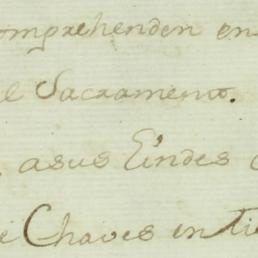 omprehenden en
el Sacramento.
asus Lindes
Chaves en Tie